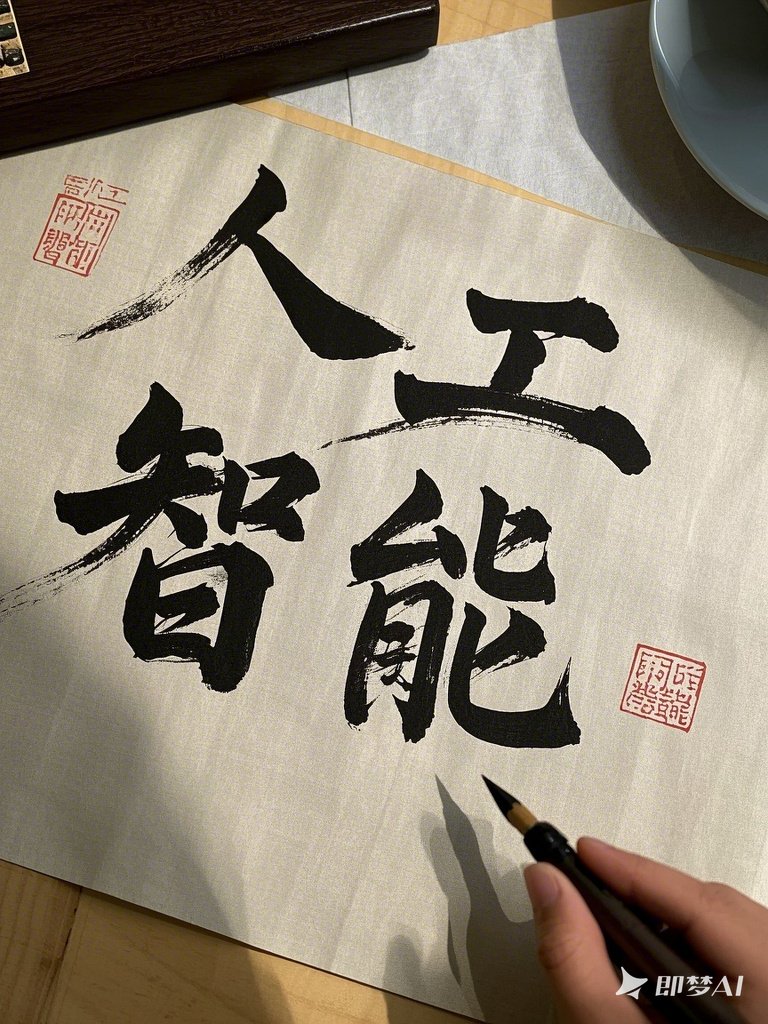 人工
智能
即梦AI